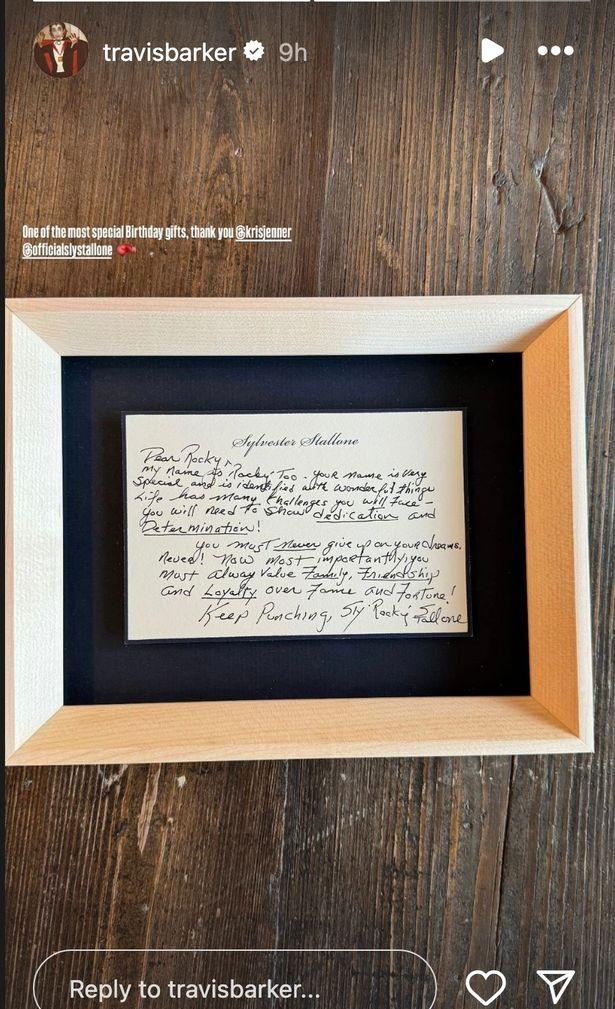 travisbarker 9h
One of the most special Birthday gifts, thank you @krisjenner
@officialslystallone
Sylvester Stallone
Dear Rocky,
my name is "Rocky" Too. Your name is Very
Special and is identified with wonderful things
Life has many Challenges you will Face
you will need to Show dedication and
Determination!
you must Never give up on your dreams.
Never! Now most importantly, you
must alway value Family, Friendship
and Loyalty over Fame and Fortune!
Keep Punching, Sly "Rocky" Stallone
Reply to travisbarker...